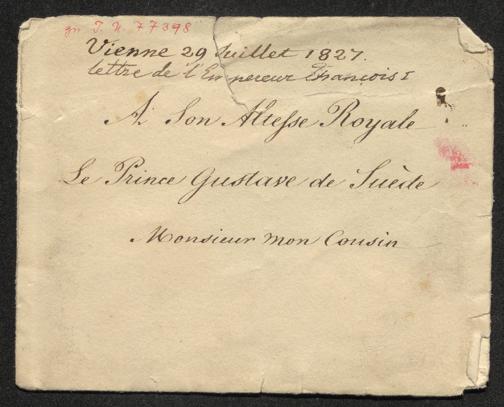 zu I. N. 77398
Vienne 29 Juillet 1827.
lettre de l'Empereur François I
A Son Altesse Royale
Le Prince Gustave de Suède
Monsieur mon Cousin